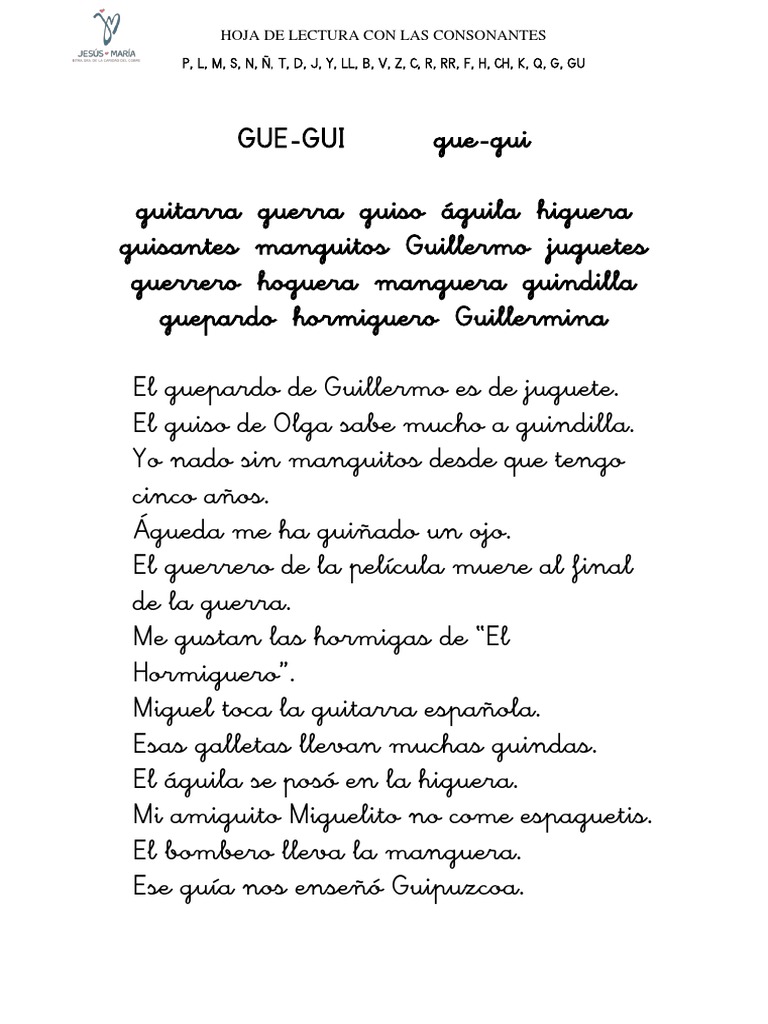 JESÚS MARÍA
HOJA DE LECTURA CON LAS CONSONANTES
P, L, M, S, N, Ñ, T, D, J, Y, LL, B, V, Z, C, R, RR, F, H, CH, K, Q, G, GU
GUE-GUI gue-gui
guitarra guerra guiso águila higuera
guisantes manguitos Guillermo juguetes
guerrero hoguera manguera guindilla
guepardo hormiguero Guillermina
El guepardo de Guillermo es de juguete.
El guiso de Olga sabe mucho a guindilla.
Yo nado sin manguitos desde que tengo
cinco años.
Águeda me ha guiñado un ojo.
El guerrero de la película muere al final
de la guerra.
Me gustan las hormigas de “El
Hormiguero”.
Miguel toca la guitarra española.
Esas galletas llevan muchas guindas.
El águila se posó en la higuera.
Mi amiguito Miguelito no come espaguetis.
El bombero lleva la manguera.
Ese guía nos enseñó Guipuzcoa.